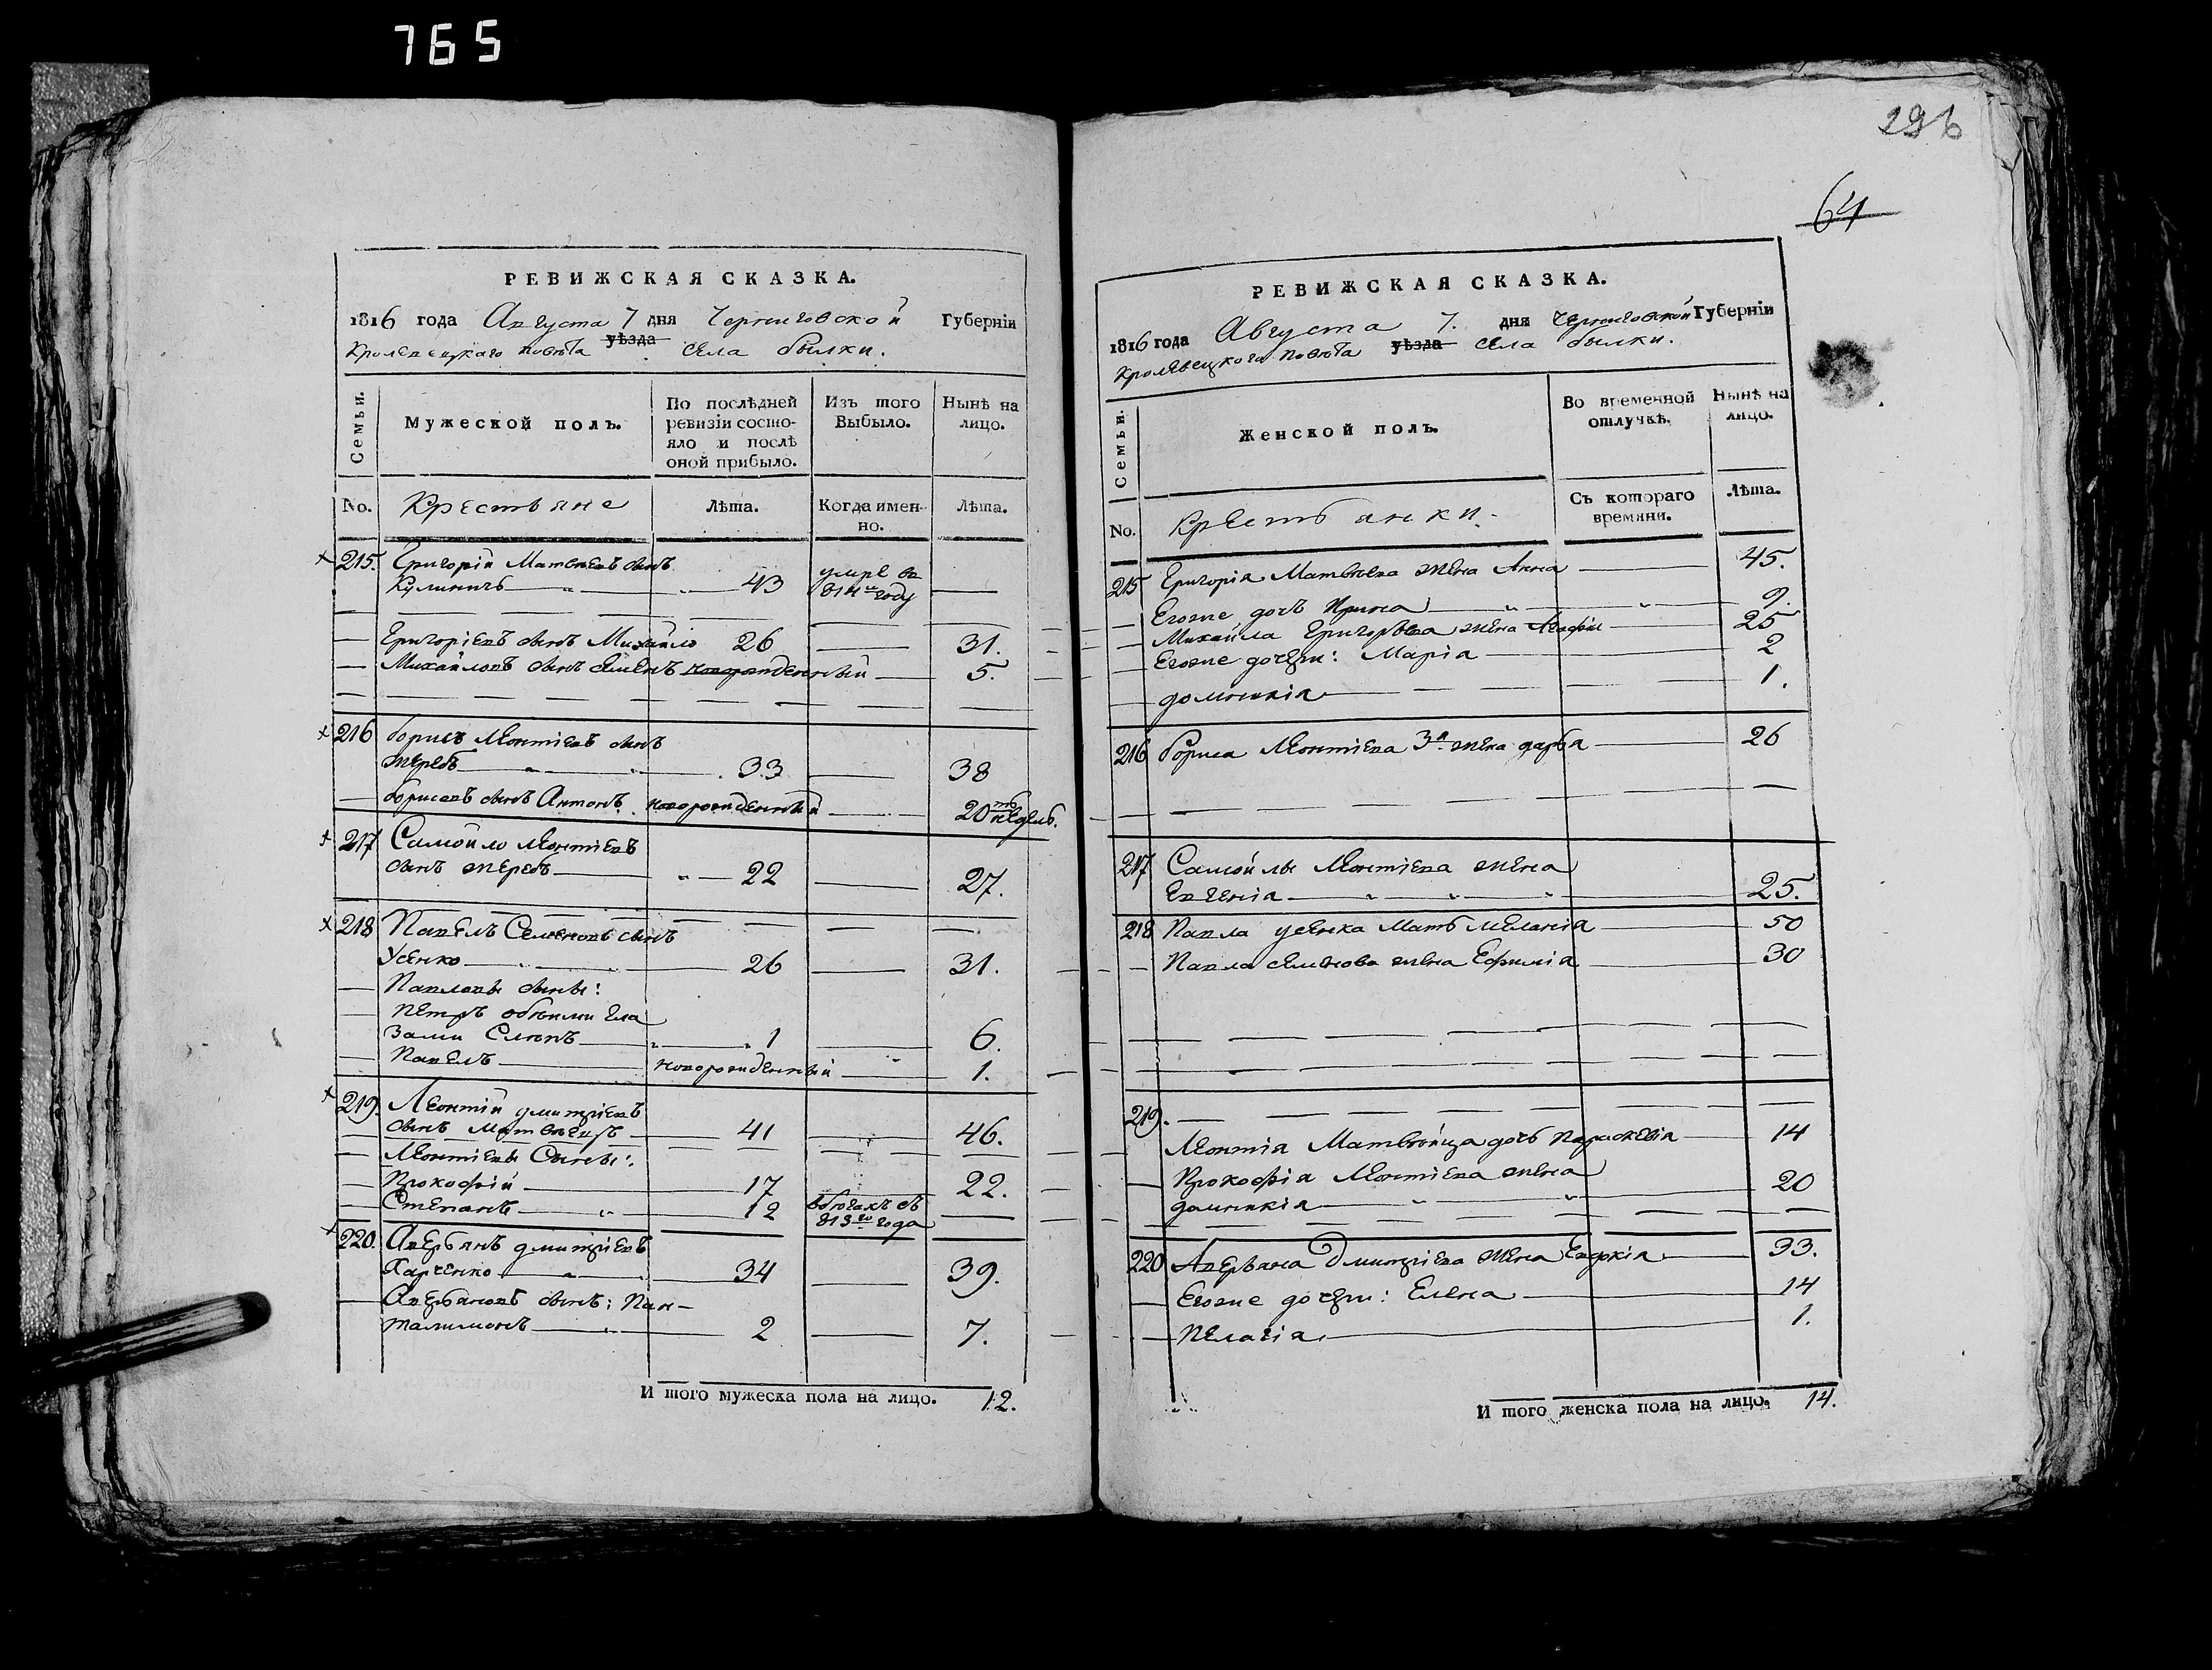 765
РЕВИЖСКАЯ СКАЗКА.
1816 года Августа 7 дня Черниговской Губерніи
Кролевецкаго повѣта уѣзда села былки.
Семьи.
Мужеской полъ.
По послѣдней ревизіи состо-
яло и послѣ
оной прибыло.
Изъ того
Выбыло.
Нынѣ на
лицо.
No.
Крестьяне
Лѣта.
Когда имен-
но.
Лѣта.
215. Григорій Матвѣевъ сынъ
Кулиничъ 43 умре в 814м году
Григоріевъ сынъ Михайло 26 31.
Михайловъ сынъ Семенъ новорожденный 5.
216 борисъ Леонтіевъ сынъ
жеребъ 33 38
борисовъ сынъ Антонъ новорожденный 20ть недель.
217 Самойло Леонтіевъ
сынъ жеребъ 22 27.
218 Павелъ Семеновъ сынъ
Усенко 26 31.
Павловы сыны:
петръ обѣими гла
зами Слепъ 1 6.
Павелъ новорожденный 1.
219. Леонтій дмитріевъ
сынъ 41 46.
Леонтіевы Сыны:
Прокофій 17 22.
Степанъ 12 въ бѣгахъ съ 813го года
220. Аверьянъ дмитріевъ
Харченко 34 39.
Аверьяновъ сынъ: Пан-
талимонъ 2 7.
И того мужеска пола на лицо. 12.
296
64
РЕВИЖСКАЯ СКАЗКА.
1816 года Августа 7. дня Черниговской Губерніи
Кролевецкого повѣта уѣзда села былки.
Семьи.
Женской полъ.
Во временной
отлучкѣ.
Нынѣ на
лицо.
No.
Крестьянки.
Съ котораго
времяни.
Лѣта.
215 Григорія Матвѣева жена Анна 45.
Егоже дочь Ирина 9.
Михайла Григорьева жена Агафія 25
Егоже дочери: Марія 2
домникія 1.
216 бориса Леонтіева 3я жена дарья 26
217 Самойлы Леонтіева жена
Евгенія 25.
218 Павла усенка мать меланія 50
Павла семенова жена Ефимія 30
219.
Леонтія Матвѣйца дочь параскевія 14
Прокофія Леонтіева жена
домникія 20
220 Аверьяна Дмитріева жена Евдокія 33.
Егоже дочери: Елена 14
пелагія 1.
И того женска пола на лицо. 14.